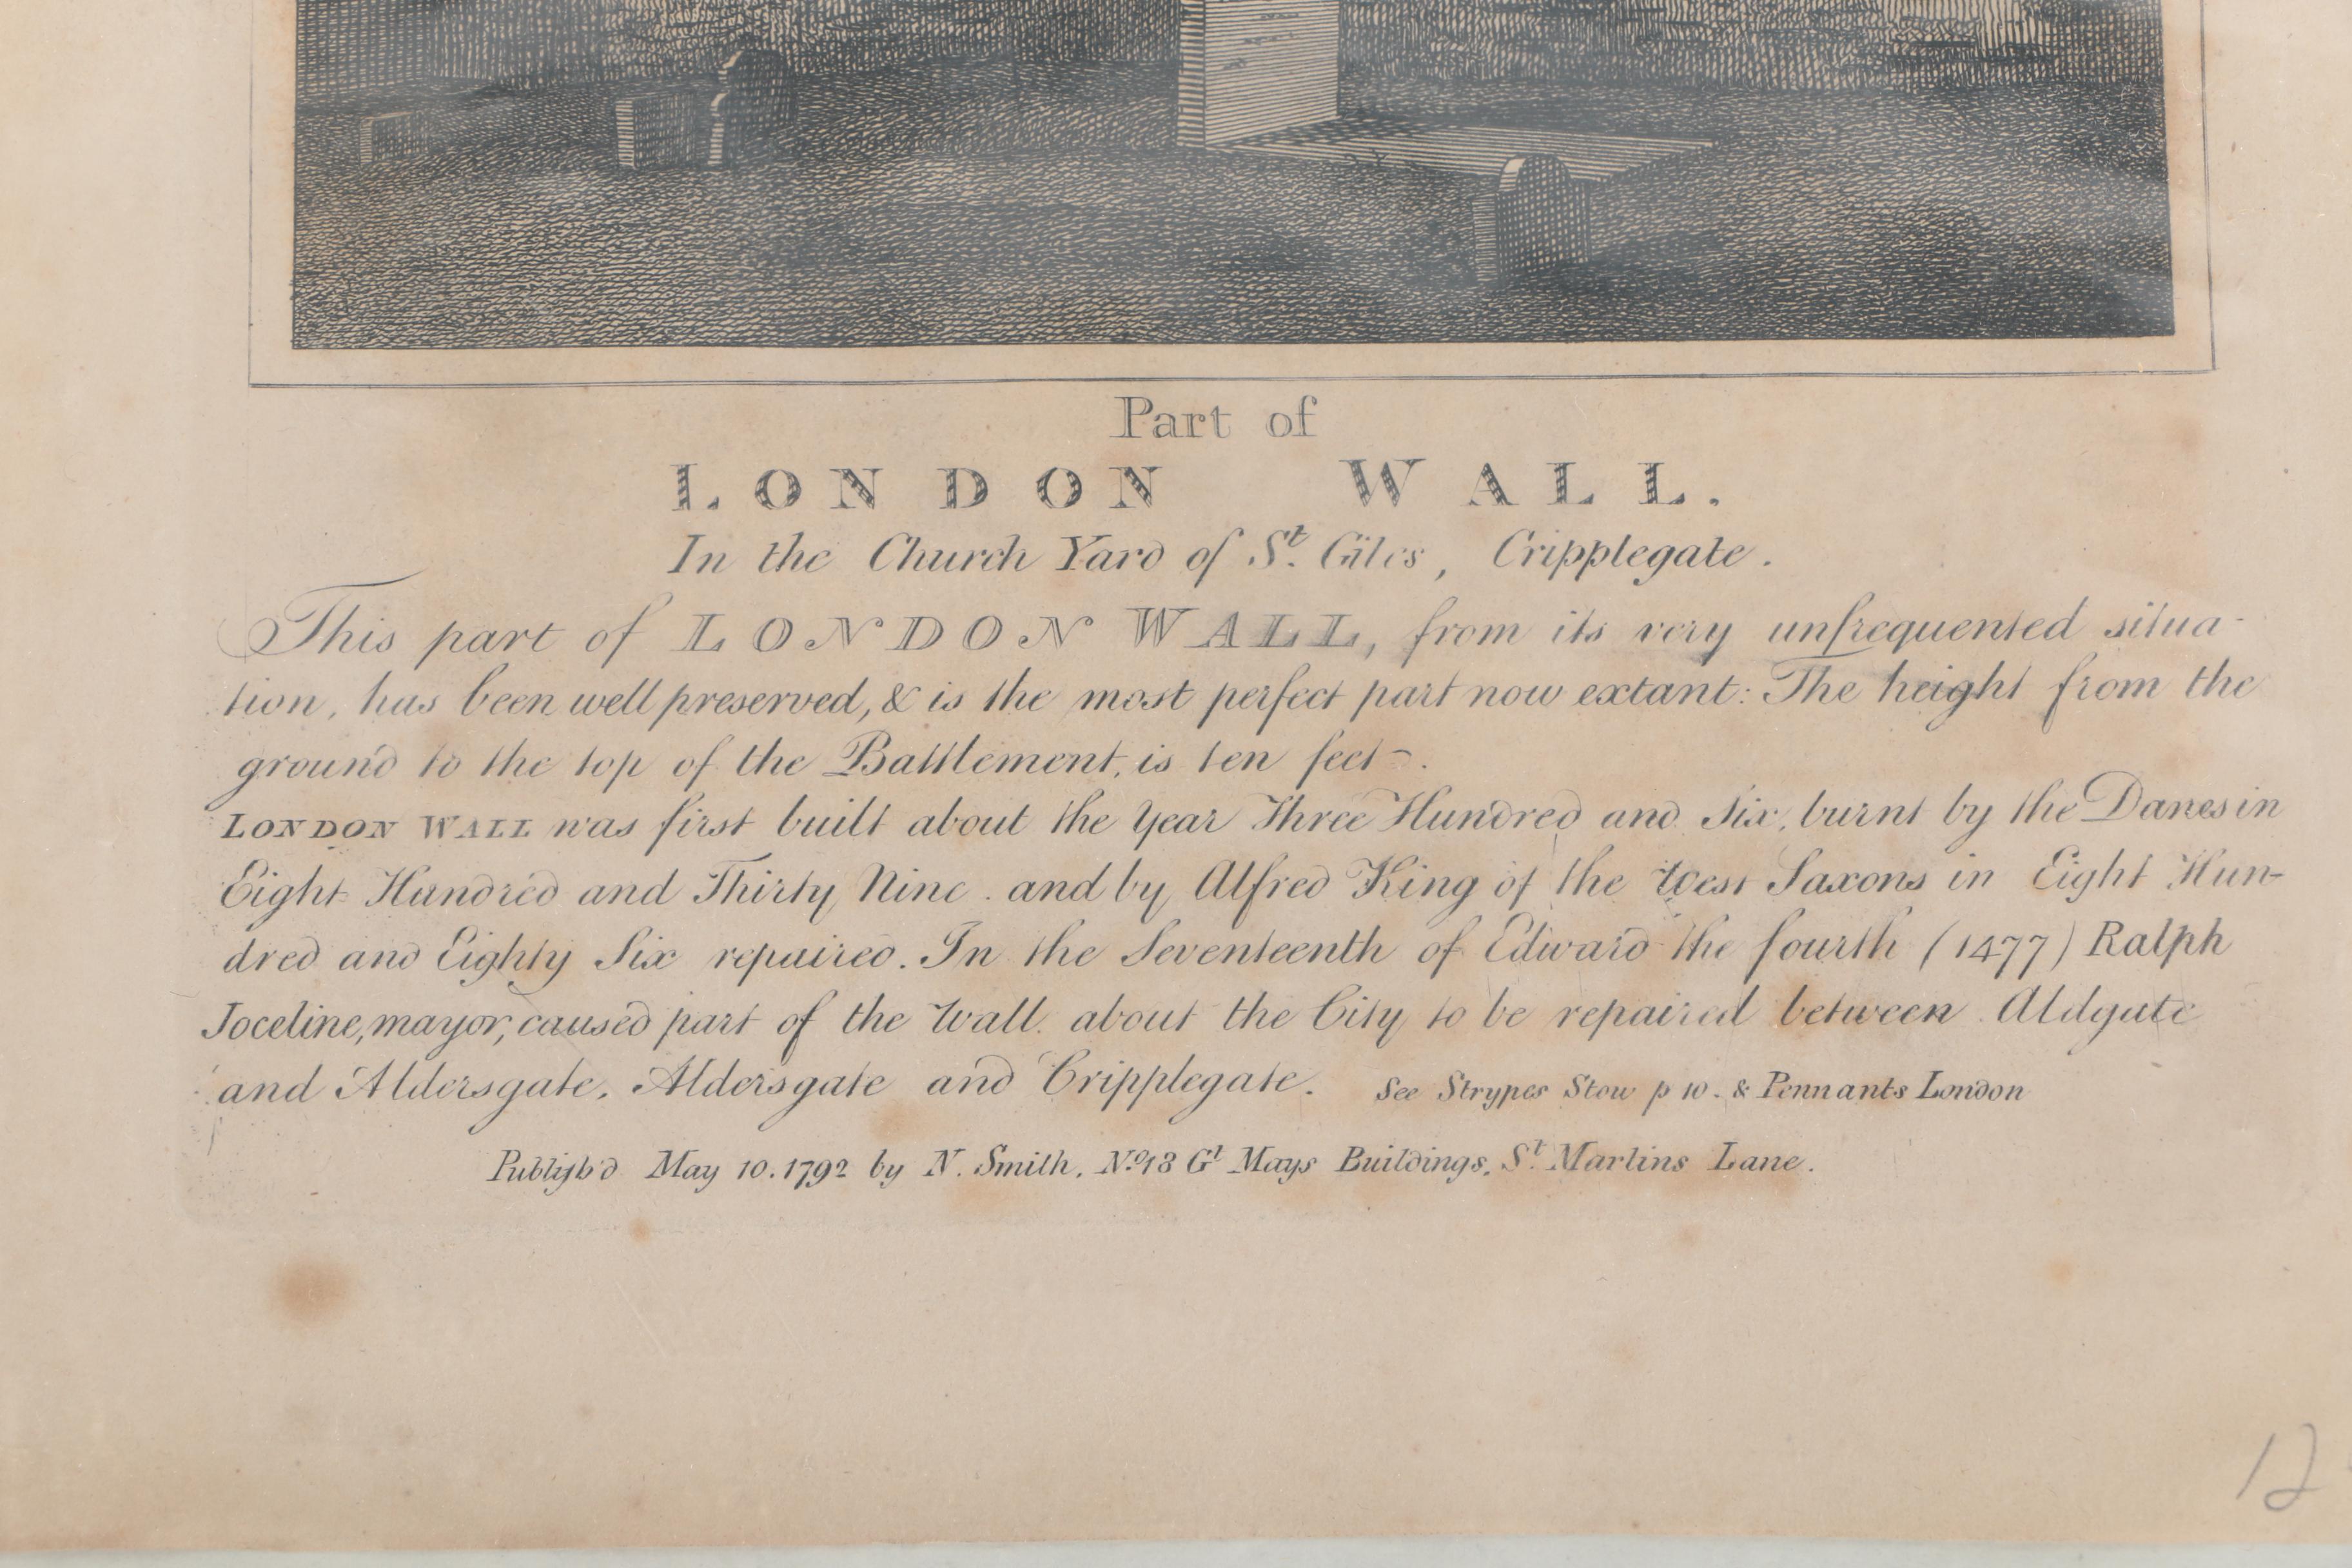 Part of
LONDON WALL.
In the Church Yard of St. Giles, Cripplegate.
This part of LONDON WALL, from its very unfrequented situa-
tion, has been well preserved, & is the most perfect part now extant: The height from the
ground to the top of the Battlement, is ten feet.
LONDON WALL was first built about the Year Three Hundred and Six, burnt by the Danes in
Eight Hundred and Thirty Nine. and by Alfred King of the West Saxons in Eight Hun-
dred and Eighty Six repaired. In the Seventeenth of Edward the fourth (1477) Ralph
Joceline, mayor, caused part of the Wall about the City to be repaired between Aldgate
and Aldersgate, Aldersgate and Cripplegate. See Strypes Stow p 10. & Pennants London
Publish'd May 10. 1792 by N. Smith, No. 18 Gt Mays Buildings, St. Martins Lane.
12